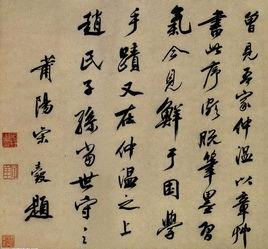 曾見吾家仲温以章艸
書此序頗脱筆墨習
氣今見鮮于困學
手蹟又在仲温之上
趙氏子孫當世守之
莆陽宋毅題